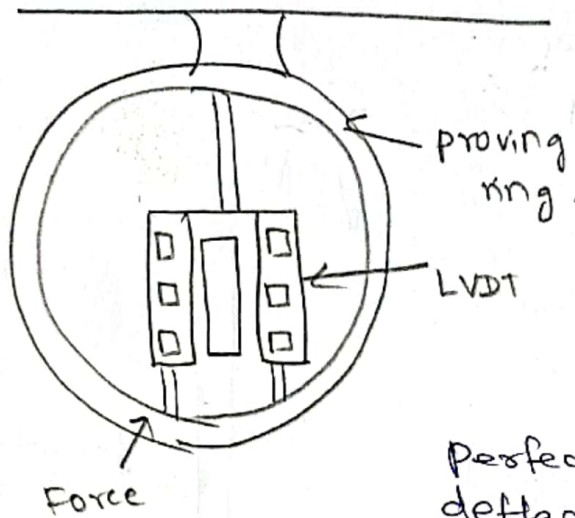 proving
ring.
LVDT
Force
perfec
deflec